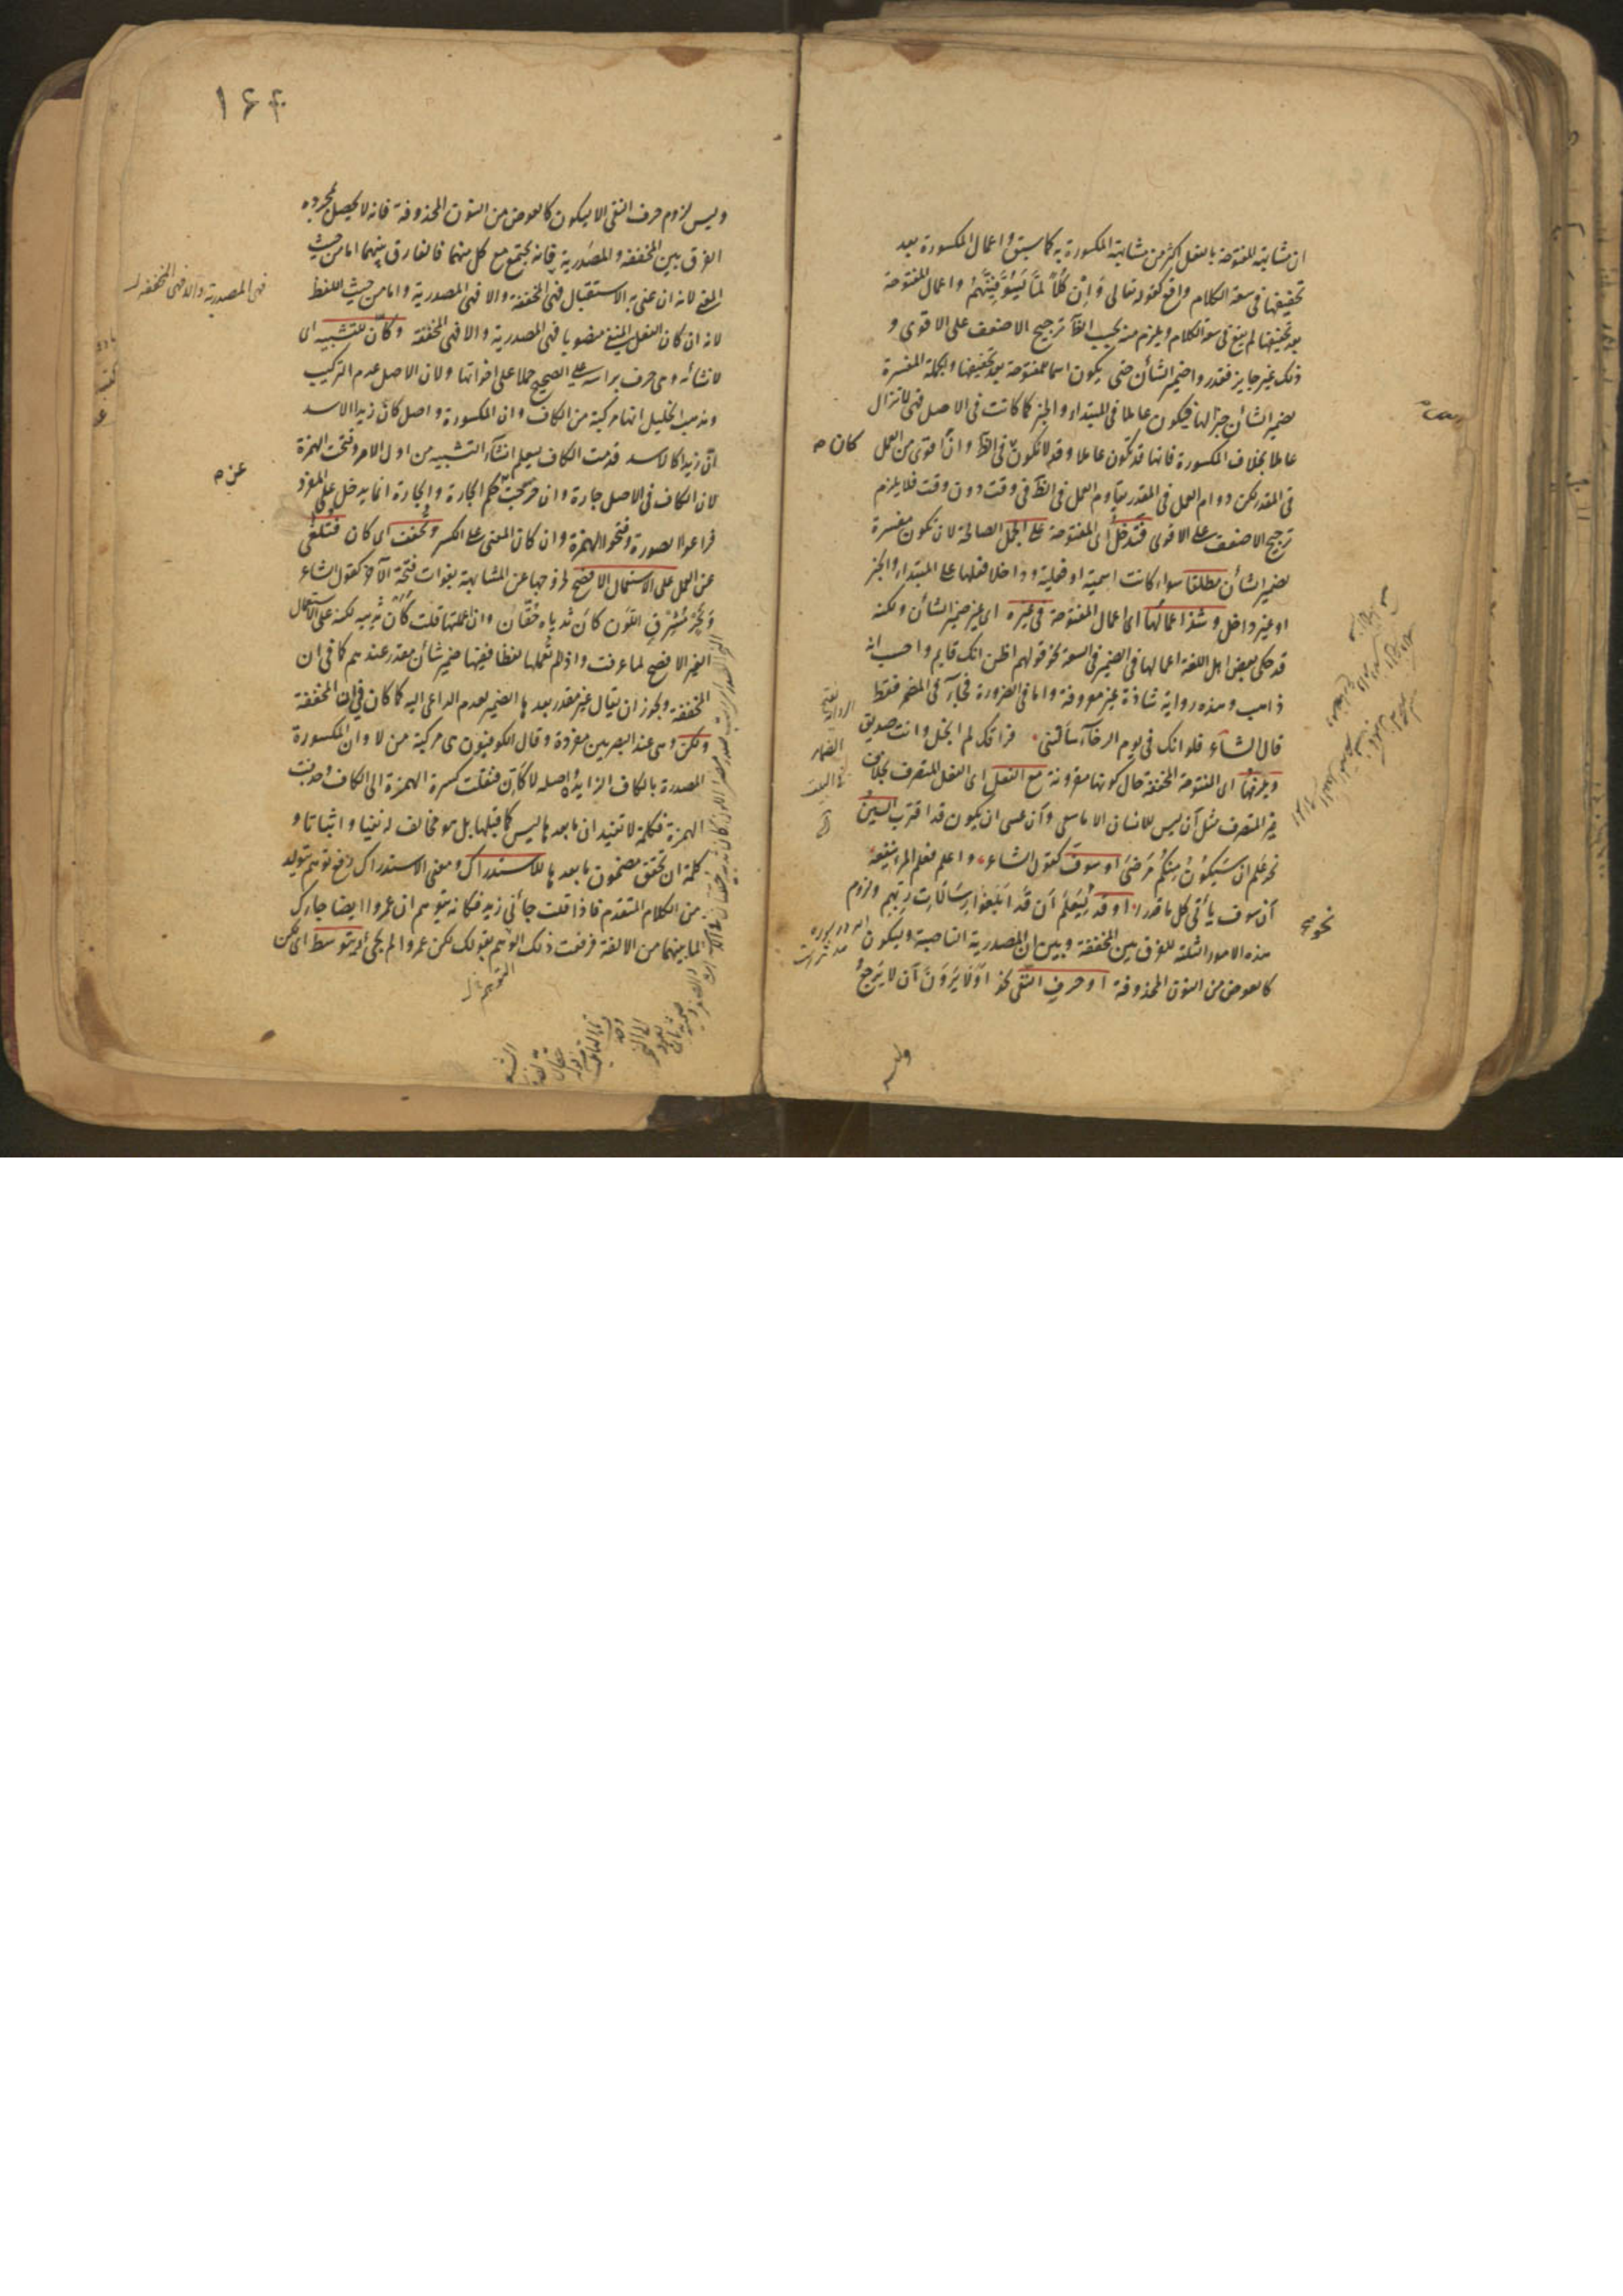 ان مشابهة المفتوحة بالفعل اكثر من مشابهة المكسورة به كما سبق واعمال المكسورة بعد
تخفيفها فى سعة الكلام واقع كقوله تعالى وَاِنْ كُلًّا لَمَّا لَيُوَفِّيَنَّهُمْ واعمال المفتوحة
بعد تخفيفها لم يقع فى سعة الكلام ويلزم منه بحسب الظآ ترجيح الاضعف على الاقوى و
ذلك غير جايز فقدروا ضمير الشأن حتى يكون اسما للمفتوحة بعد تخفيفها والجملة المفسرة
لضمير الشأن خبرا لها فيكون عاملا فى المبتداء والخبر كما كانت فى الاصل فهى لا تزال
عاملا بخلاف المكسورة فانها قد تكون عاملا وقد لا تكون فى الظآ وان اقوى من العمل
كان م
فى المقدر لكن دوام العمل فى المقدر يقاوم العمل فى الظآ فى وقت دون وقت فلا يلزم
ترجيح الاضعف على الاقوى فتدخل اى المفتوحة على الجمل الصالحة لان تكون مفسرة
لضمير الشأن مطلقا سواء كانت اسمية او فعلية وداخلا فعلها على المبتداء والخبر
او غير داخل وشذ اعمالها اى اعمال المفتوحة فى غيره اى غير ضمير الشأن ولكنه
قد حكى بعض اهل اللغة اعمالها فى الضمير فى السعة نحو قولهم اظن انك قايم واحسب انه
ذاهب وهذه رواية شاذة غير معروفة واما فى الضرورة فجآء فى المضمر فقط
قال الشاء فلو انك فى يوم الرخآء سألتنى فراقك لم ابخل وانت صديق
ويلزمها اى المفتوحة المخففة حال كونها مقرونة مع الفعل اى الفعل المتصرف بخلاف
غير المتصرف مثل آن ليس للانسان الا ما سعى وآن عسى ان يكون قد اقترب السين
نحو علم ان سَيَكُونُ مِنكُم مَرضى او سوف كقول الشاء واعلم فعلم المرء ينفعه
آن سوف يأتى كل ما قدرا او قد لِيَعْلَمَ اَن قَد اَبلَغُوا رِسَالَاتِ رَبِّهِم ولزوم
نحو صح
هذه الامور الثلثة للفرق بين المخففة وبين ان المصدرية الناصبة وليكون
كالعوض من النون المحذوفة او حرف النفى نحو اَفَلَا يَرَونَ آن لا يَرجِعُ
وليس
١٦٤
وليس لزوم حرف النفى الا ليكون كالعوض من النون المحذوفة فانه لا يحصل بمجرده
الفرق بين المخففة والمصدرية فانه يجتمع مع كل منهما فالفارق بينهما اما من حيث
المعنى لانه ان عنى به الاستقبال فهى المخففة والا فهى المصدرية واما من حيث اللفظ
فهى المصدرية والا فهى المخففة
لانه ان كان الفعل المنفى منصوبا فهى المصدرية والا فهى المخففة وكأن للتشبيه اى
لانشائه وهى حرف براسه على الصحيح حملا على اخواتها ولان الاصل عدم التركيب
وذهب الخليل انها مركبة من الكاف وان المكسورة واصل كأن زيدا الاسد
ان زيدا كالاسد قدمت الكاف ليعلم انشاء التشبيه من اول الامر وفتحت الهمزة
لان الكاف فى الاصل جارة وان خرجت حكم الجارة والجارة انما يدخل على المفرد
عن م
فراعوا الصورة وفتحوا الهمزة وان كان المعنى على الكسر وتخفف اى كان فتلغى
عن العمل على الاستعمال الافصح لخروجها عن المشابهة بفوات فتحة الآخر كقول الشاء
وَنَحْرٍ مُشْرِقِ اللَّون كَأَن ثَدياه حُقَّان وان اعملتها قلت كأن ثدييه لكنه على الاستعمال
الغير الافصح لما عرفت واذا لم تعملها لفظا ففيها ضمير شأن مقدر عندهم كما فى ان
المخففة ويجوز ان يقال غير مقدر بعدها الضمير لعدم الداعى اليه كما كان فى ان المخففة
ولكن وهى عند البصريين مفردة وقال الكوفيون هى مركبة من لا وان المكسورة
المصدرة بالكاف الزايدة واصله لا كأن فنقلت كسرة الهمزة الى الكاف وحذفت
الهمزة فكلمة لا تفيد ان ما بعدها ليس كما قبلها بل هو مخالف له نفيا واثباتا و
كلمة ان تحقق مضمون ما بعدها للاستدراك ومعنى الاستدراك رفع توهم يتولد
من الكلام المتقدم فاذا قلت جائنى زيد فكانه يتوهم ان عمروا ايضا جاءك
لما بينهما من الالفة فرفعت ذلك الوهم بقولك لكن عمروا لم يجئ يتوسط اى لكن